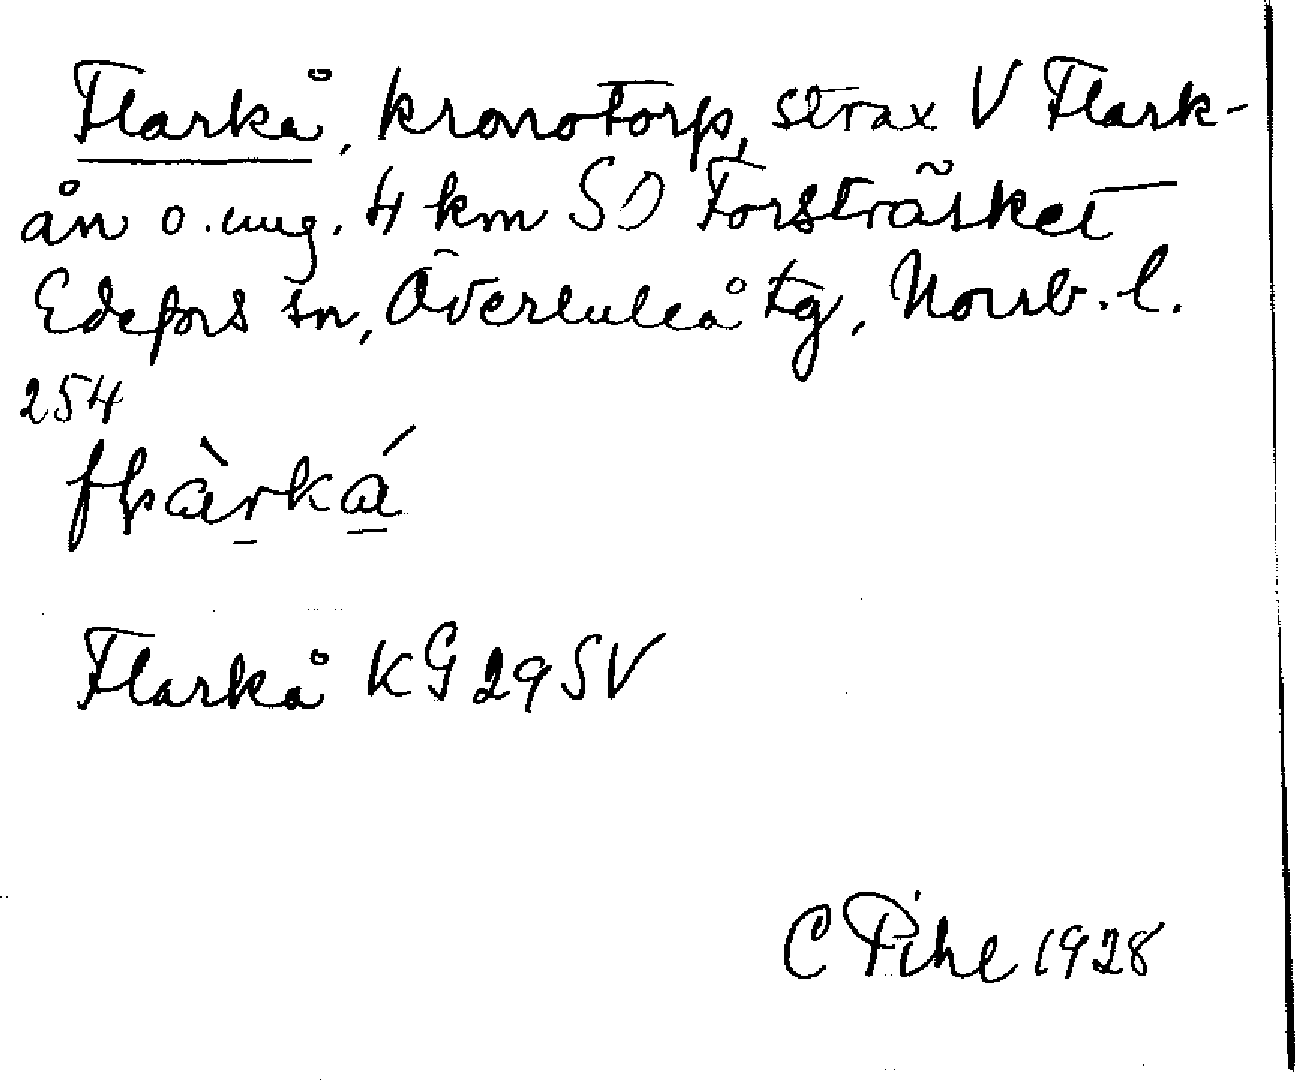 Flarkå, kronotorp, strax V Flark-
ån o. ung. 4 km SO Forsträsket
Edefors sn, Överluleå tg, Norrb. l.
254
Flarkå KG 29 SV
C Pihl 1928